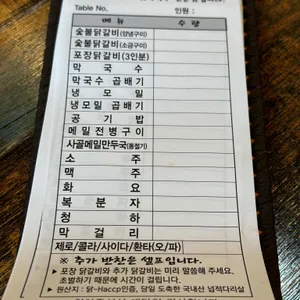 Table No,
인원 :
메 뉴 수 량
숯불닭갈비(양념구이)
숯불닭갈비(소금구이)
포장닭갈비(3인분)
막 국 수
막국수 곱배기
냉 모 밀
냉모밀 곱배기
공 기 밥
메밀전병구이
사골메밀만두국(동절기)
소 주
맥 주
화 요
복 분 자
청 하
막 걸 리
제로/콜라/사이다/환타(오/파)
※ 추가 반찬은 셀프입니다.
▶ 포장 닭갈비와 추가 닭갈비는 미리 말씀해 주세요.
초벌하기 때문에 시간이 걸립니다.
▶ 원산지 : 닭-Haccp인증, 당일 도축한 국내산 넓적다리살